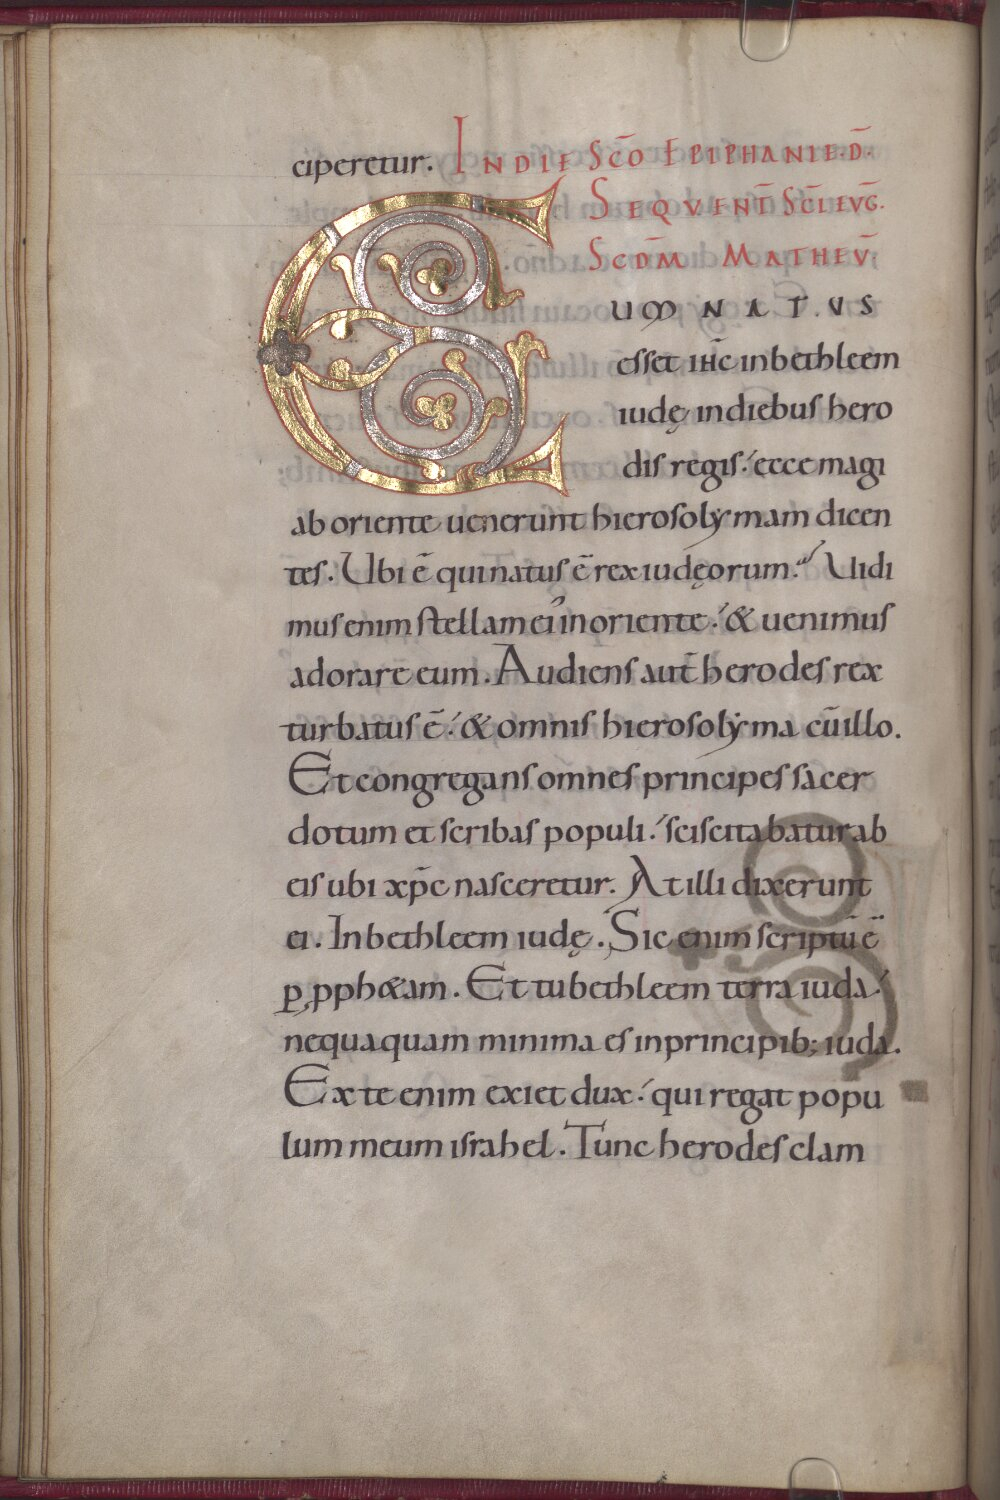 ciperetur. IN DIE SC̄O EPIPHANIE. D̄.
SEQVENT̄ SC̄I EVḠ.
SCD̄M MATHEV̄
C UM NATUS
esset ihc̄ in bethleem
iudę in diebus hero
dis regis. ecce magi
ab oriente uenerunt hierosolymam dicen
tes. Ubi ē qui natus ē rex iudęorum. Uidi
mus enim stellam ei' in oriente. & uenimus
adorare eum. Audiens aut̄ herodes rex
turbatus ē. & omnis hierosolyma cū illo.
Et congregans omnes principes sacer
dotum et scribas populi. sciscitabatur ab
eis ubi xp̄c nasceretur. At illi dixerunt
ei. In bethleem iudę. Sic enim scriptū ē
ꝑ pph&am. Et tu bethleem terra iuda
nequaquam minima es in principib; iuda.
Ex te enim exiet dux. qui regat popu
lum meum israhel. Tunc herodes clam